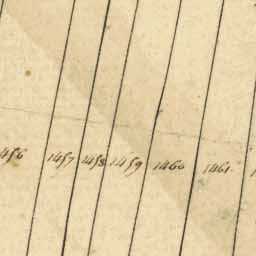 1456 1457 1458 1459 1460 1461